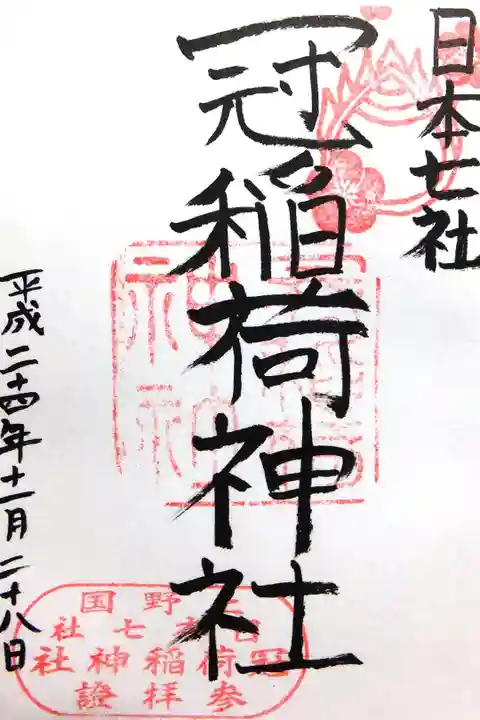 日本七社
冠稲荷神社
平成二十四年十一月二十八日
上野国
日本七社
冠稲荷神社
参拝證